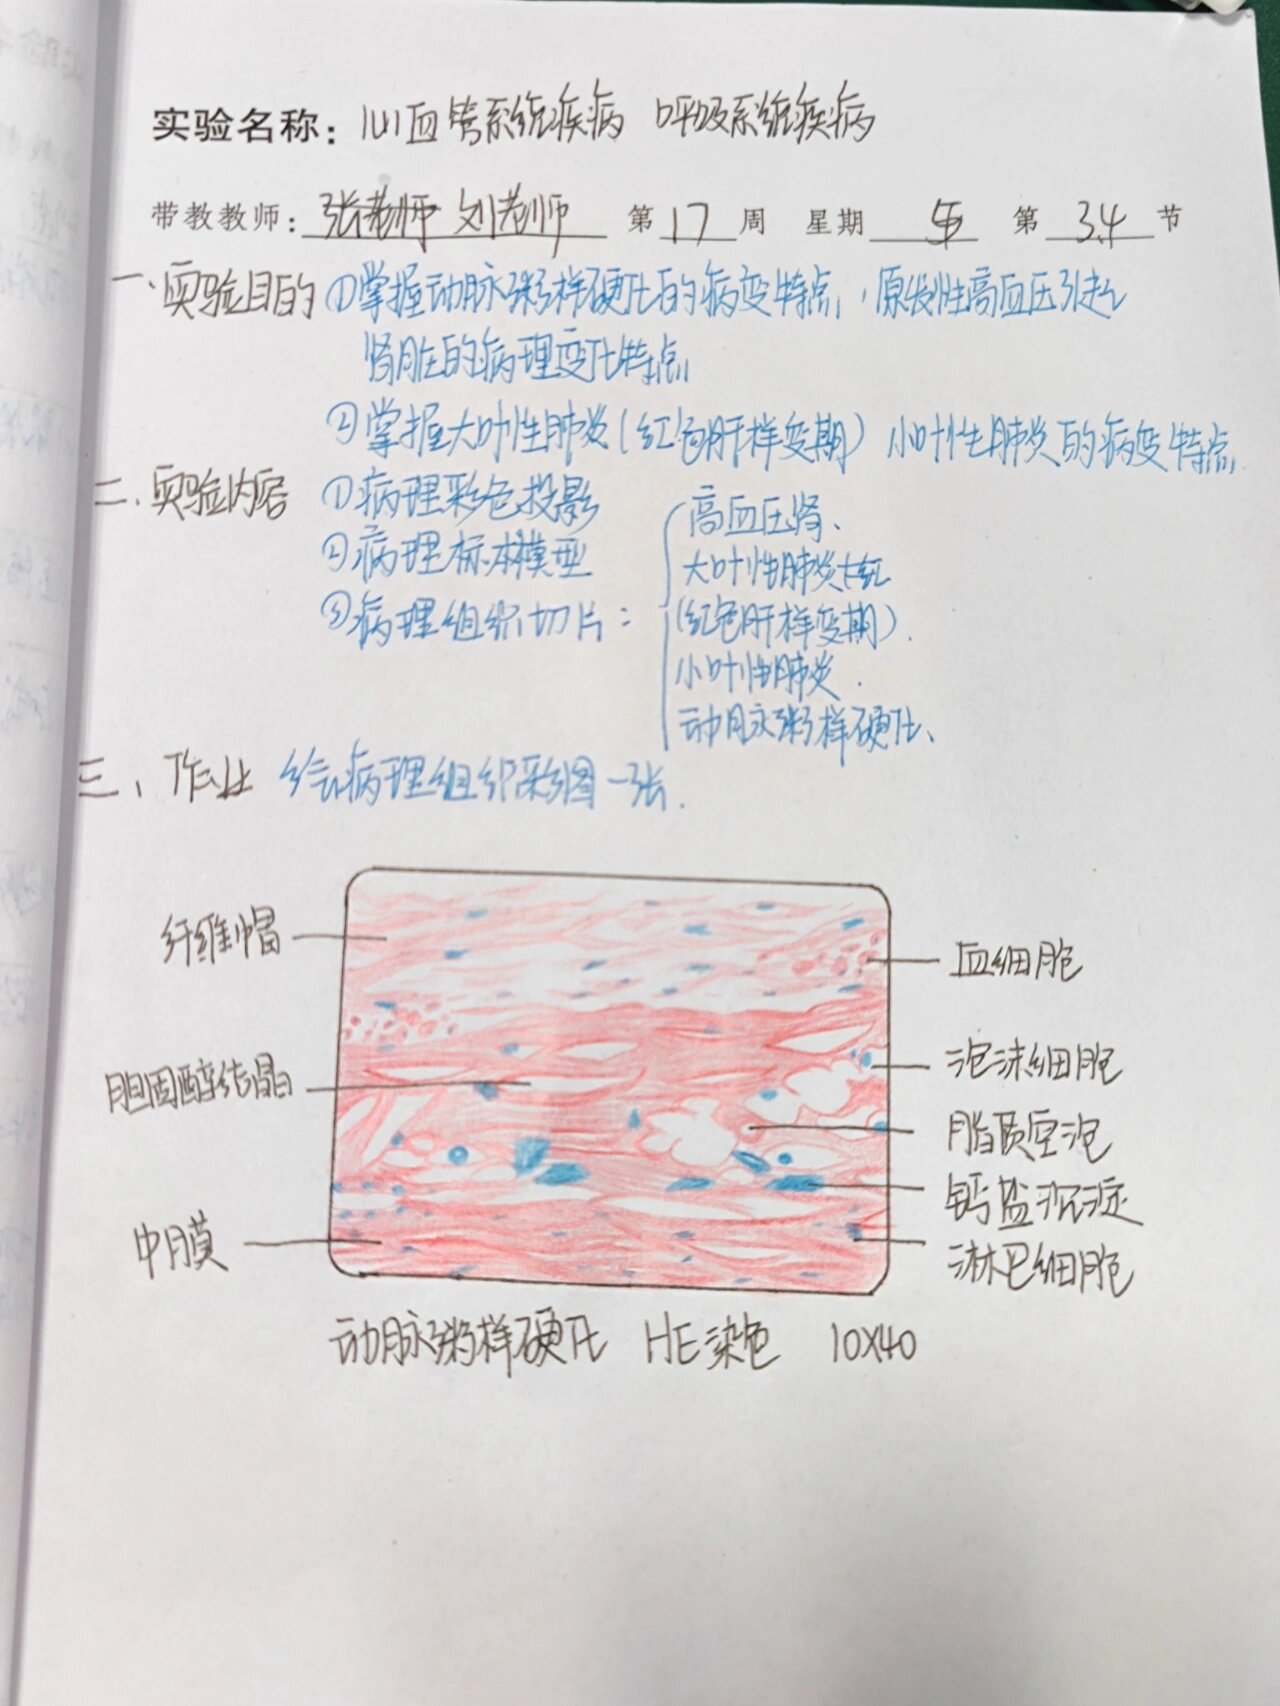 实验名称：心血管系统疾病 呼吸系统疾病
带教教师：张老师 刘老师 第17周 星期五 第3.4节
一、实验目的 ①掌握动脉粥样硬化的病变特点，原发性高血压引起
肾脏的病理变化特点
②掌握大叶性肺炎（红色肝样变期）小叶性肺炎的病变特点
二、实验内容 ①病理彩色投影
②病理标本模型
③病理组织切片：
高血压肾、
大叶性肺炎
（红色肝样变期）.
小叶性肺炎.
动脉粥样硬化、
三、作业 绘病理组织彩图一张.
纤维帽
血细胞
胆固醇结晶
泡沫细胞
脂质空泡
钙盐沉淀
中膜
淋巴细胞
动脉粥样硬化 HE染色 10X40